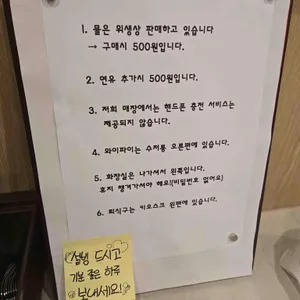 1. 물은 위생상 판매하고 있습니다
→ 구매시 500원입니다.
2. 연유 추가시 500원입니다.
3. 저희 매장에서는 핸드폰 충전 서비스는
제공되지 않습니다.
4. 와이파이는 수저통 오른편에 있습니다.
5. 화장실은 나가셔서 왼쪽입니다.
휴지 챙겨가셔야 해요!(비밀번호 없어요)
6. 퇴식구는 키오스크 왼편에 있습니다.
설빙 드시고
기분 좋은 하루
보내세요!